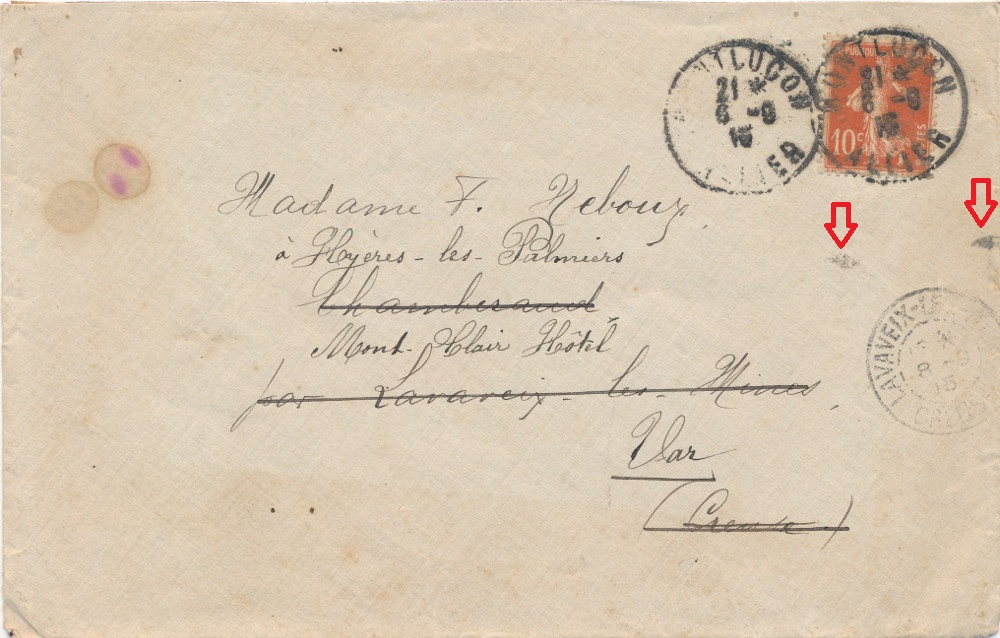 MONTLUCON
21 *
6 -9
15
ALLIER
MONTLUCON
21 *
6 -9
15
ALLIER
10c
Madame F. Rebouz
à Hyères-les-Palmiers
Chamberaud,
Mont-Clair Hôtel
par Lavaveix-les-Mines,
Var
(Creuse)
LAVAVEIX-LES
8
15
CREUSE